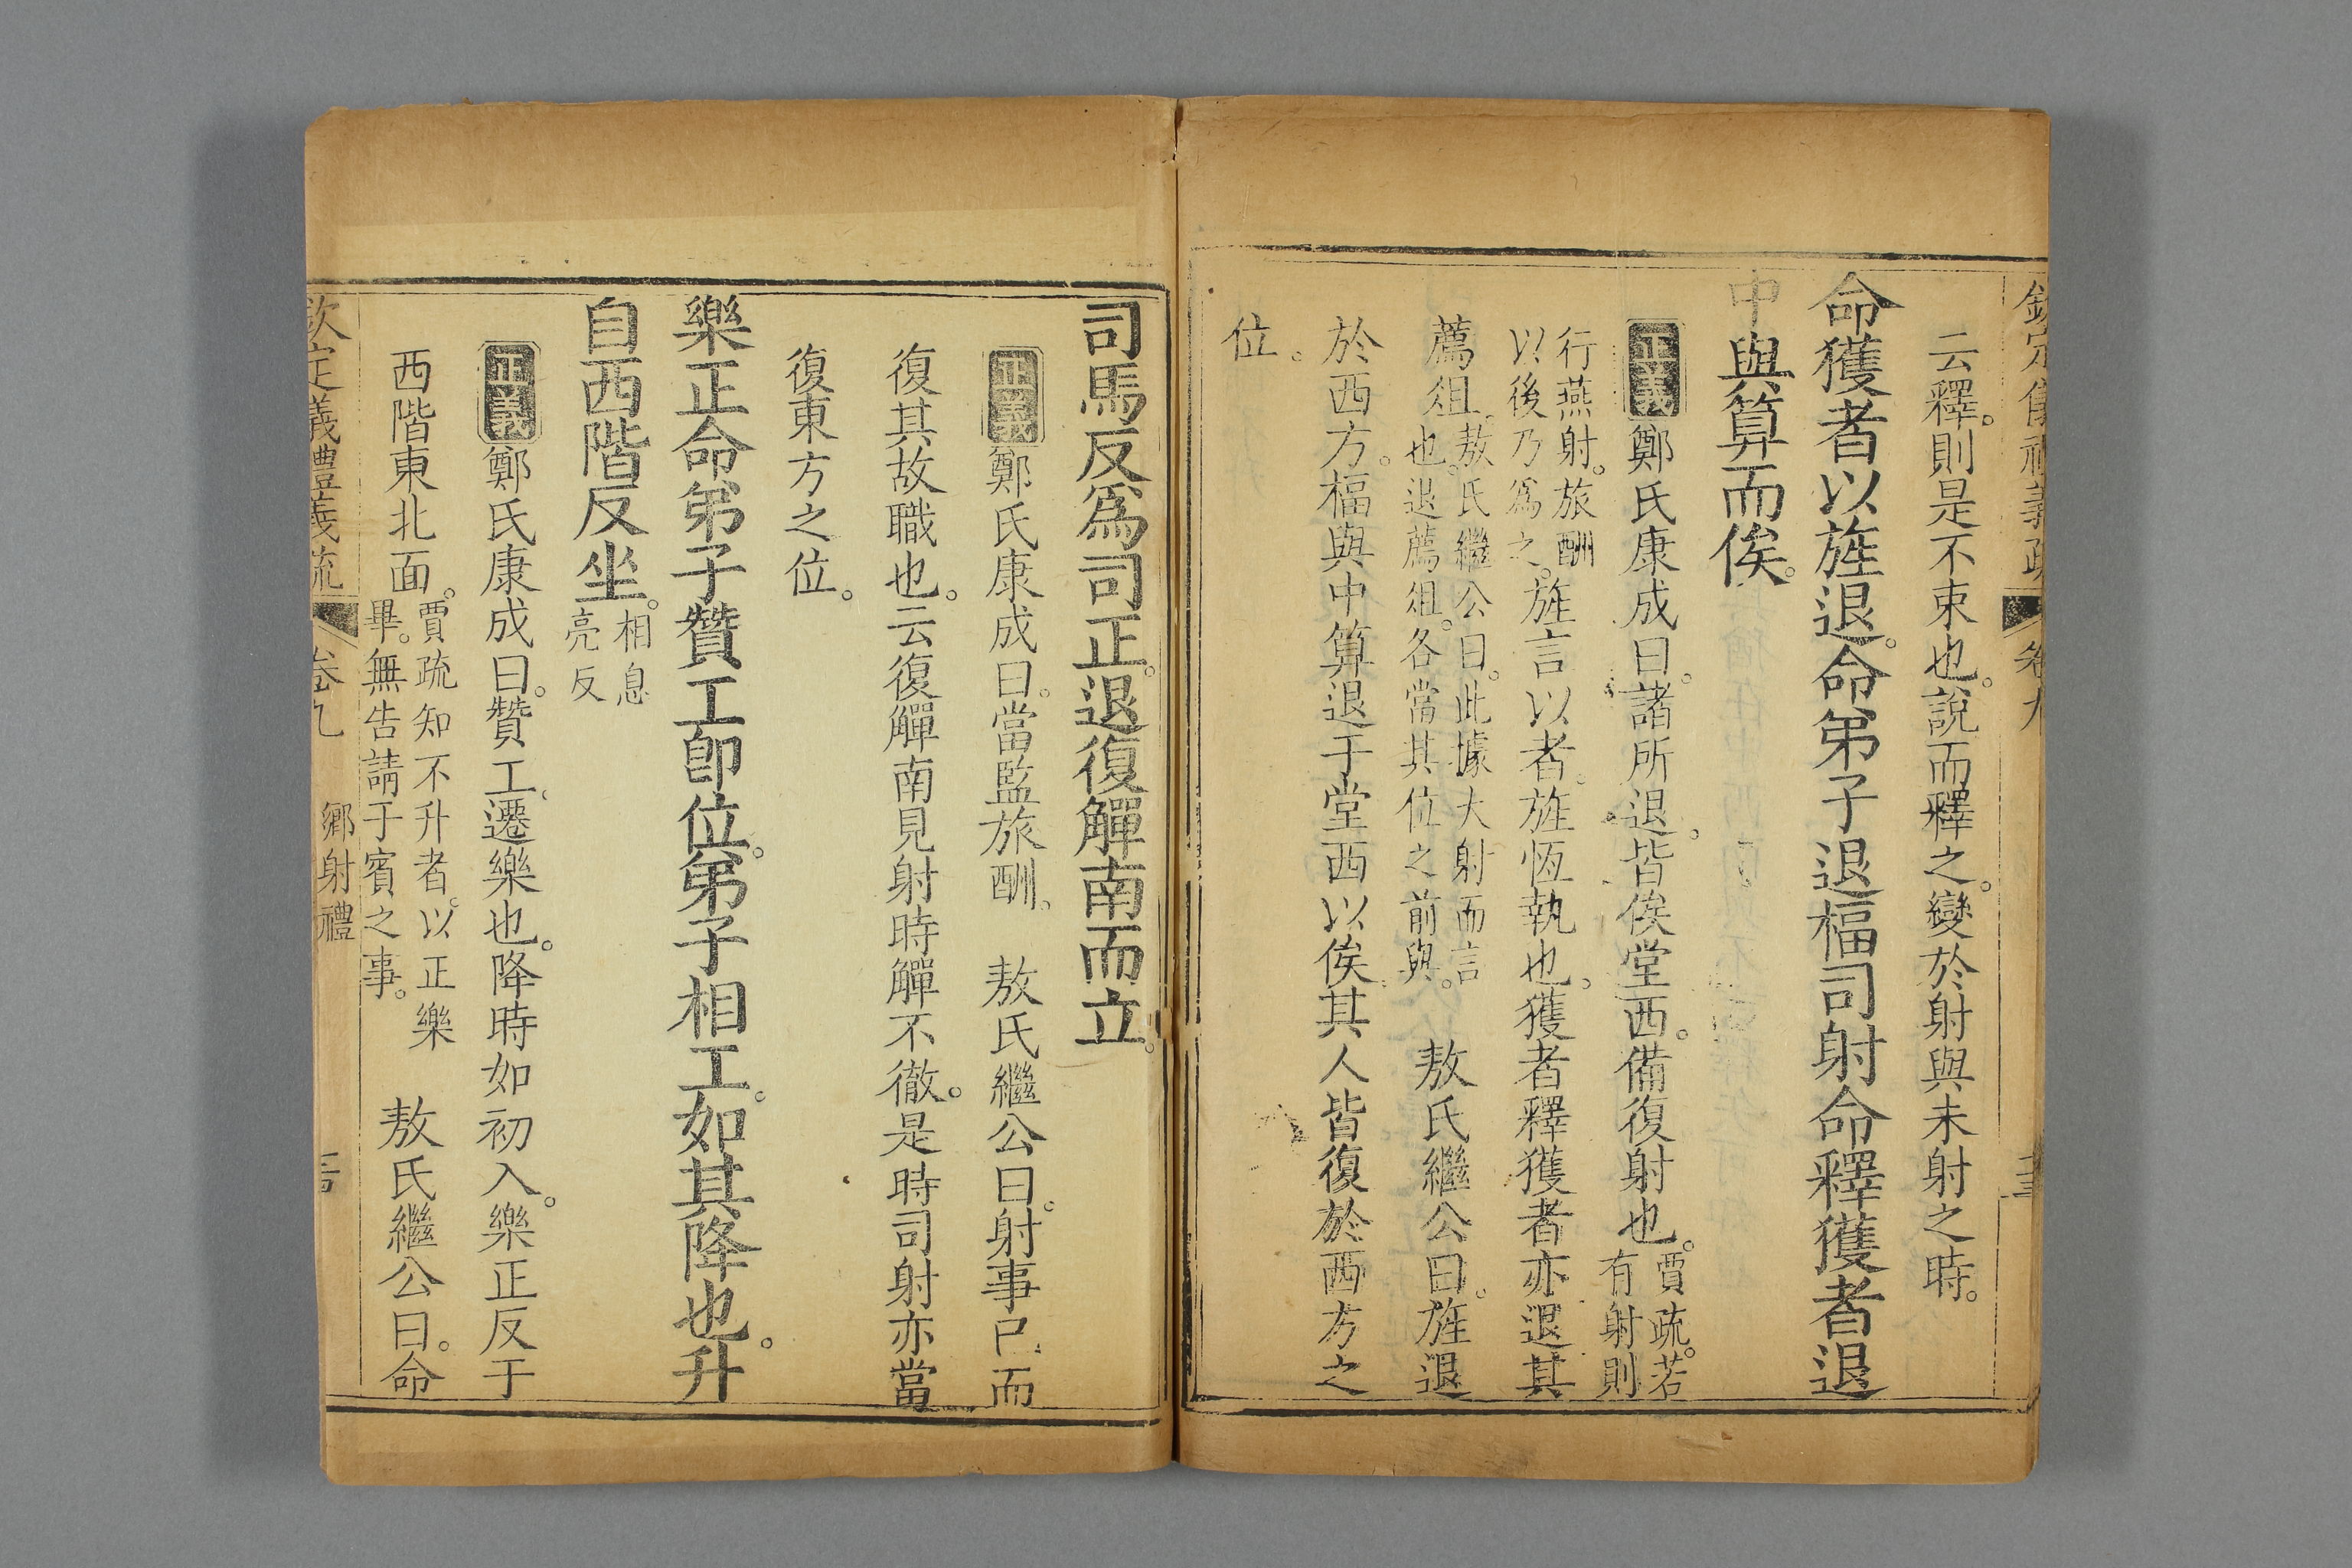 欽定儀禮義疏 卷九
云釋。則是不束也。說而釋之。變於射與未射之時。
命獲者以旌退。命弟子退楅司射命釋獲者退
中與算而俟。
正義 鄭氏康成曰。諸所退。皆俟堂西。備復射也。賈疏。若有射則
行燕射。旅酬以後乃爲之。旌言以者。旌恆執也。獲者釋獲者亦退其
薦俎。敖氏繼公曰。此據大射而言也。退薦俎。各當其位之前與。 敖氏繼公曰。旌退
於西方。楅與中算退于堂西以俟。其人皆復於西方之
位。
司馬反爲司正。退復觶南而立。
正義 鄭氏康成曰。當監旅酬。 敖氏繼公曰。射事已而
復其故職也。云復觶南見射時觶不徹。是時司射亦當
復東方之位。
樂正命弟子贊工卽位。弟子相工。如其降也。升
自西階反坐。相息亮反
正義 鄭氏康成曰。贊工。遷樂也。降時如初入。樂正反于
西階東北面。賈疏知不升者。以正樂畢。無告請于賓之事。 敖氏繼公曰。命
欽定義禮義疏 卷九 鄉射禮